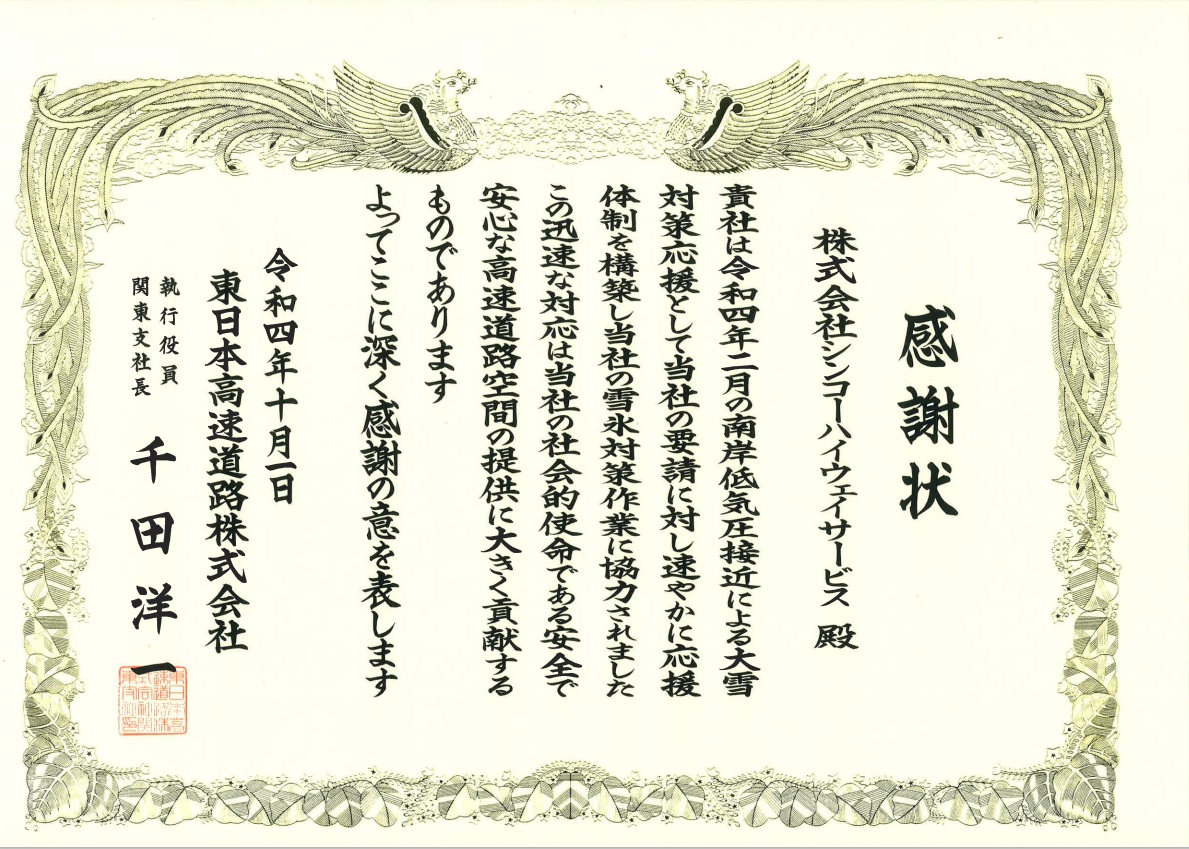 感謝状
株式会社シンコーハイウェイサービス 殿
貴社は令和四年二月の南岸低気圧接近による大雪
対策応援として当社の要請に対し速やかに応援
体制を構築し当社の雪氷対策作業に協力されました
この迅速な対応は当社の社会的使命である安全で
安心な高速道路空間の提供に大きく貢献する
ものであります
よってここに深く感謝の意を表します
令和四年十月一日
東日本高速道路株式会社
執行役員
関東支社長
千田洋一